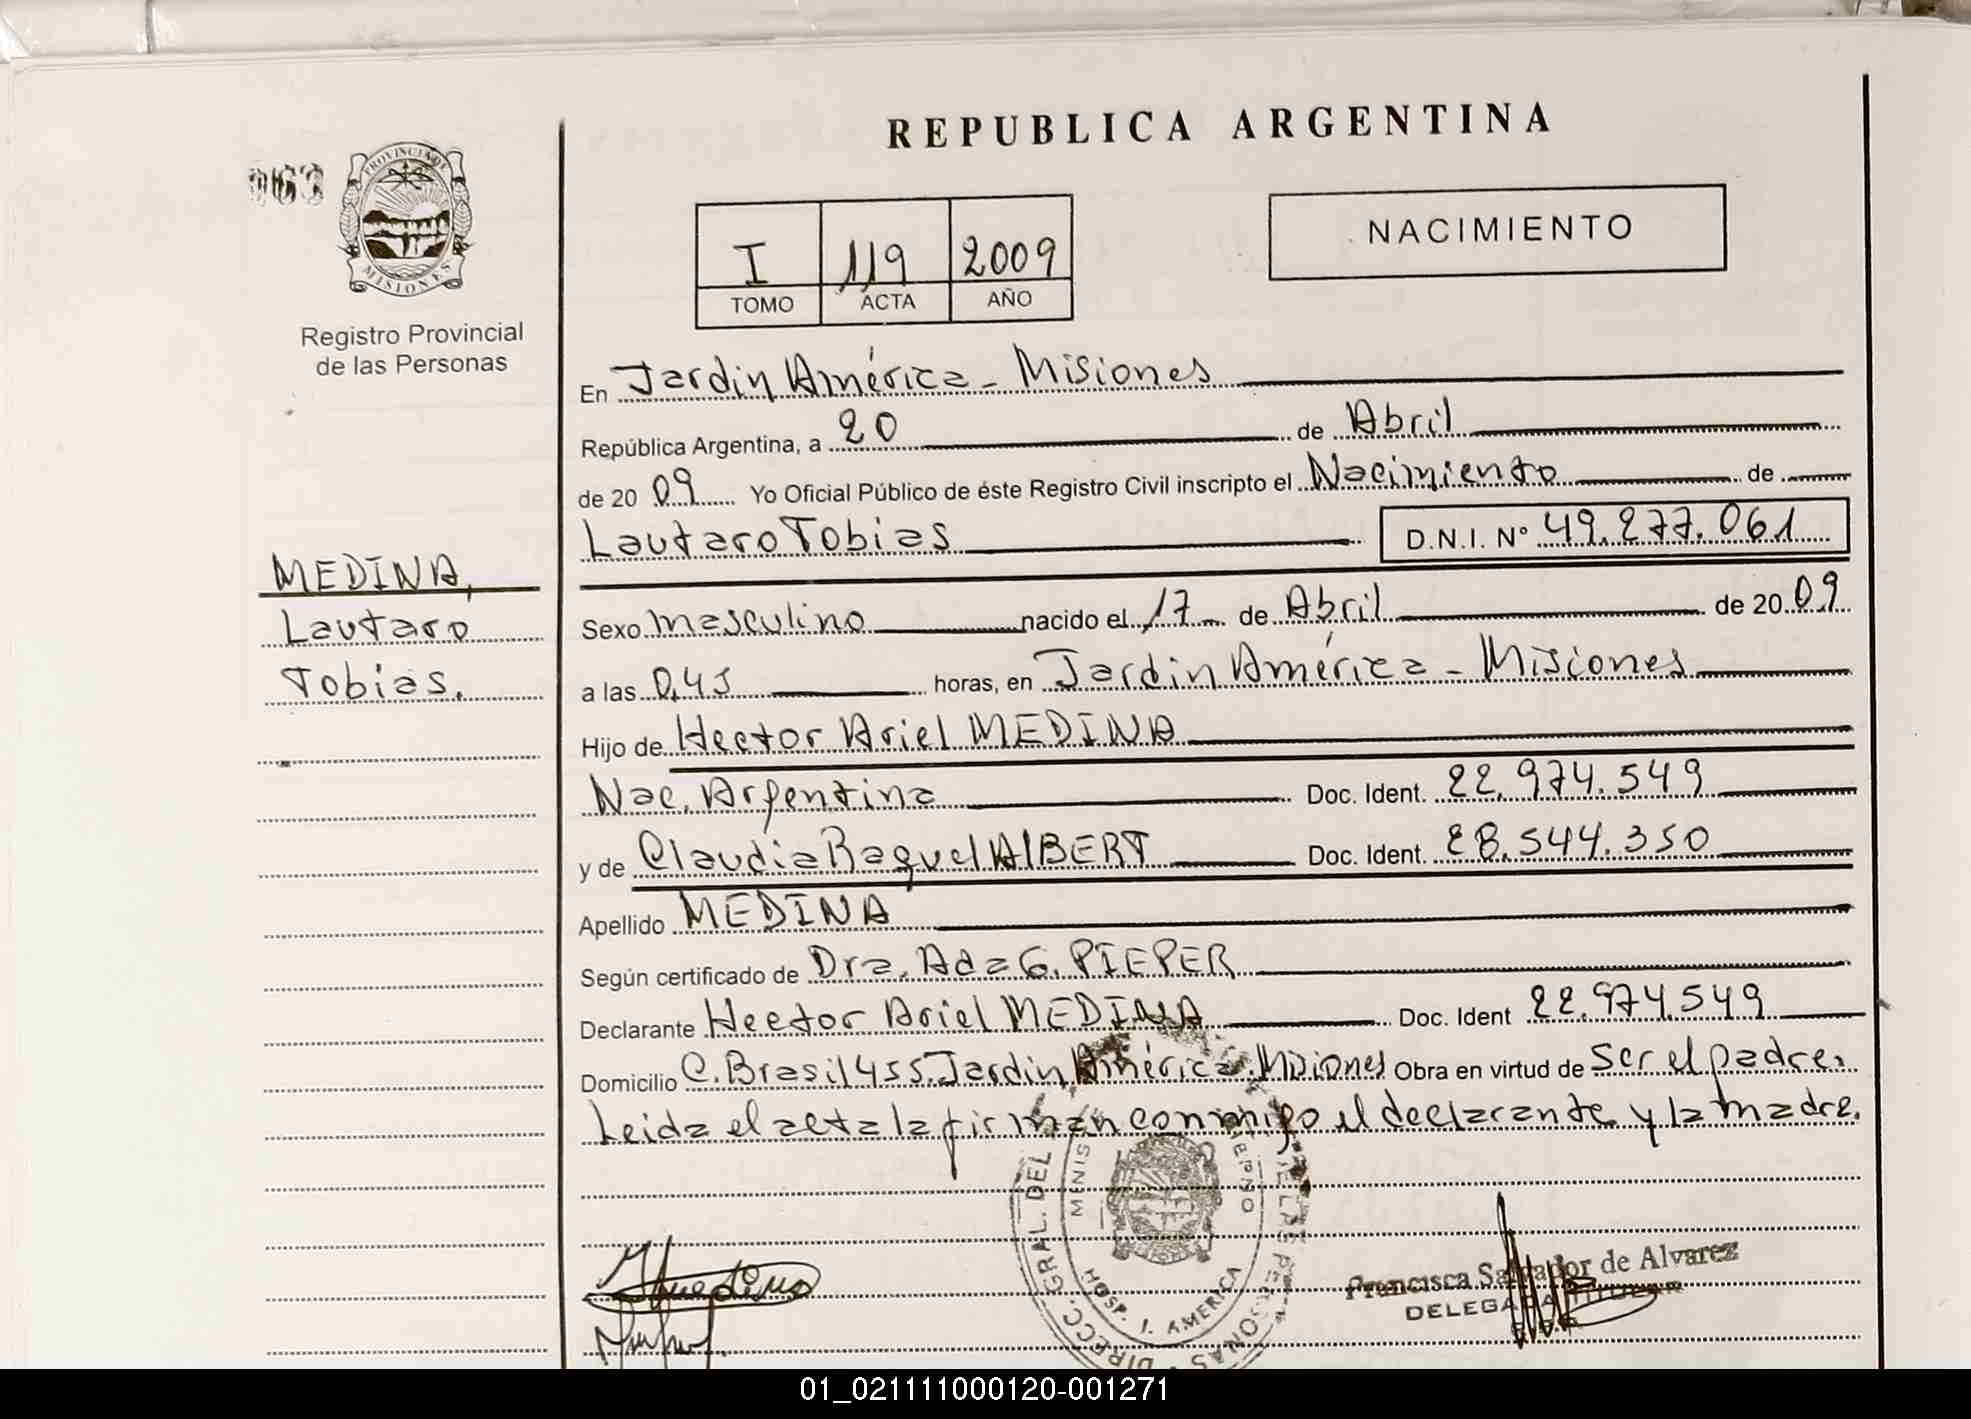 REPUBLICA ARGENTINA
063
PROVINCIA DE
MISIONES
Registro Provincial
de las Personas
I 119 2009
TOMO ACTA AÑO
NACIMIENTO
En Jardin América - Misiones
República Argentina, a 20 de Abril
de 2009 Yo Oficial Público de éste Registro Civil inscripto el Nacimiento de
Lautaro Tobias D.N.I. Nº 49.277.061
MEDINA,
Lautaro
Tobias.
Sexo masculino nacido el 17 de Abril de 2009
a las 0,45 horas, en Jardin América - Misiones
Hijo de Hector Ariel MEDINA
Nac. Argentina Doc. Ident. 22.974.549
y de Claudia Raquel AlBERT Doc. Ident. 28.544.350
Apellido MEDINA
Según certificado de Dra. Ada G. PIEPER
Declarante Hector Ariel MEDINA Doc. Ident 22.974.549
Domicilio C. Brasil 455. Jardin América. Misiones Obra en virtud de Ser el padre.
Leida el acta la firman conmigo el declarante y la madre.
DIRECC. GRAL. DEL
DE LAS PERSONAS
HOSP. J. AMERICA
Francisca Salvador de Alvarez
DELEGADA TITULAR
01_021111000120-001271